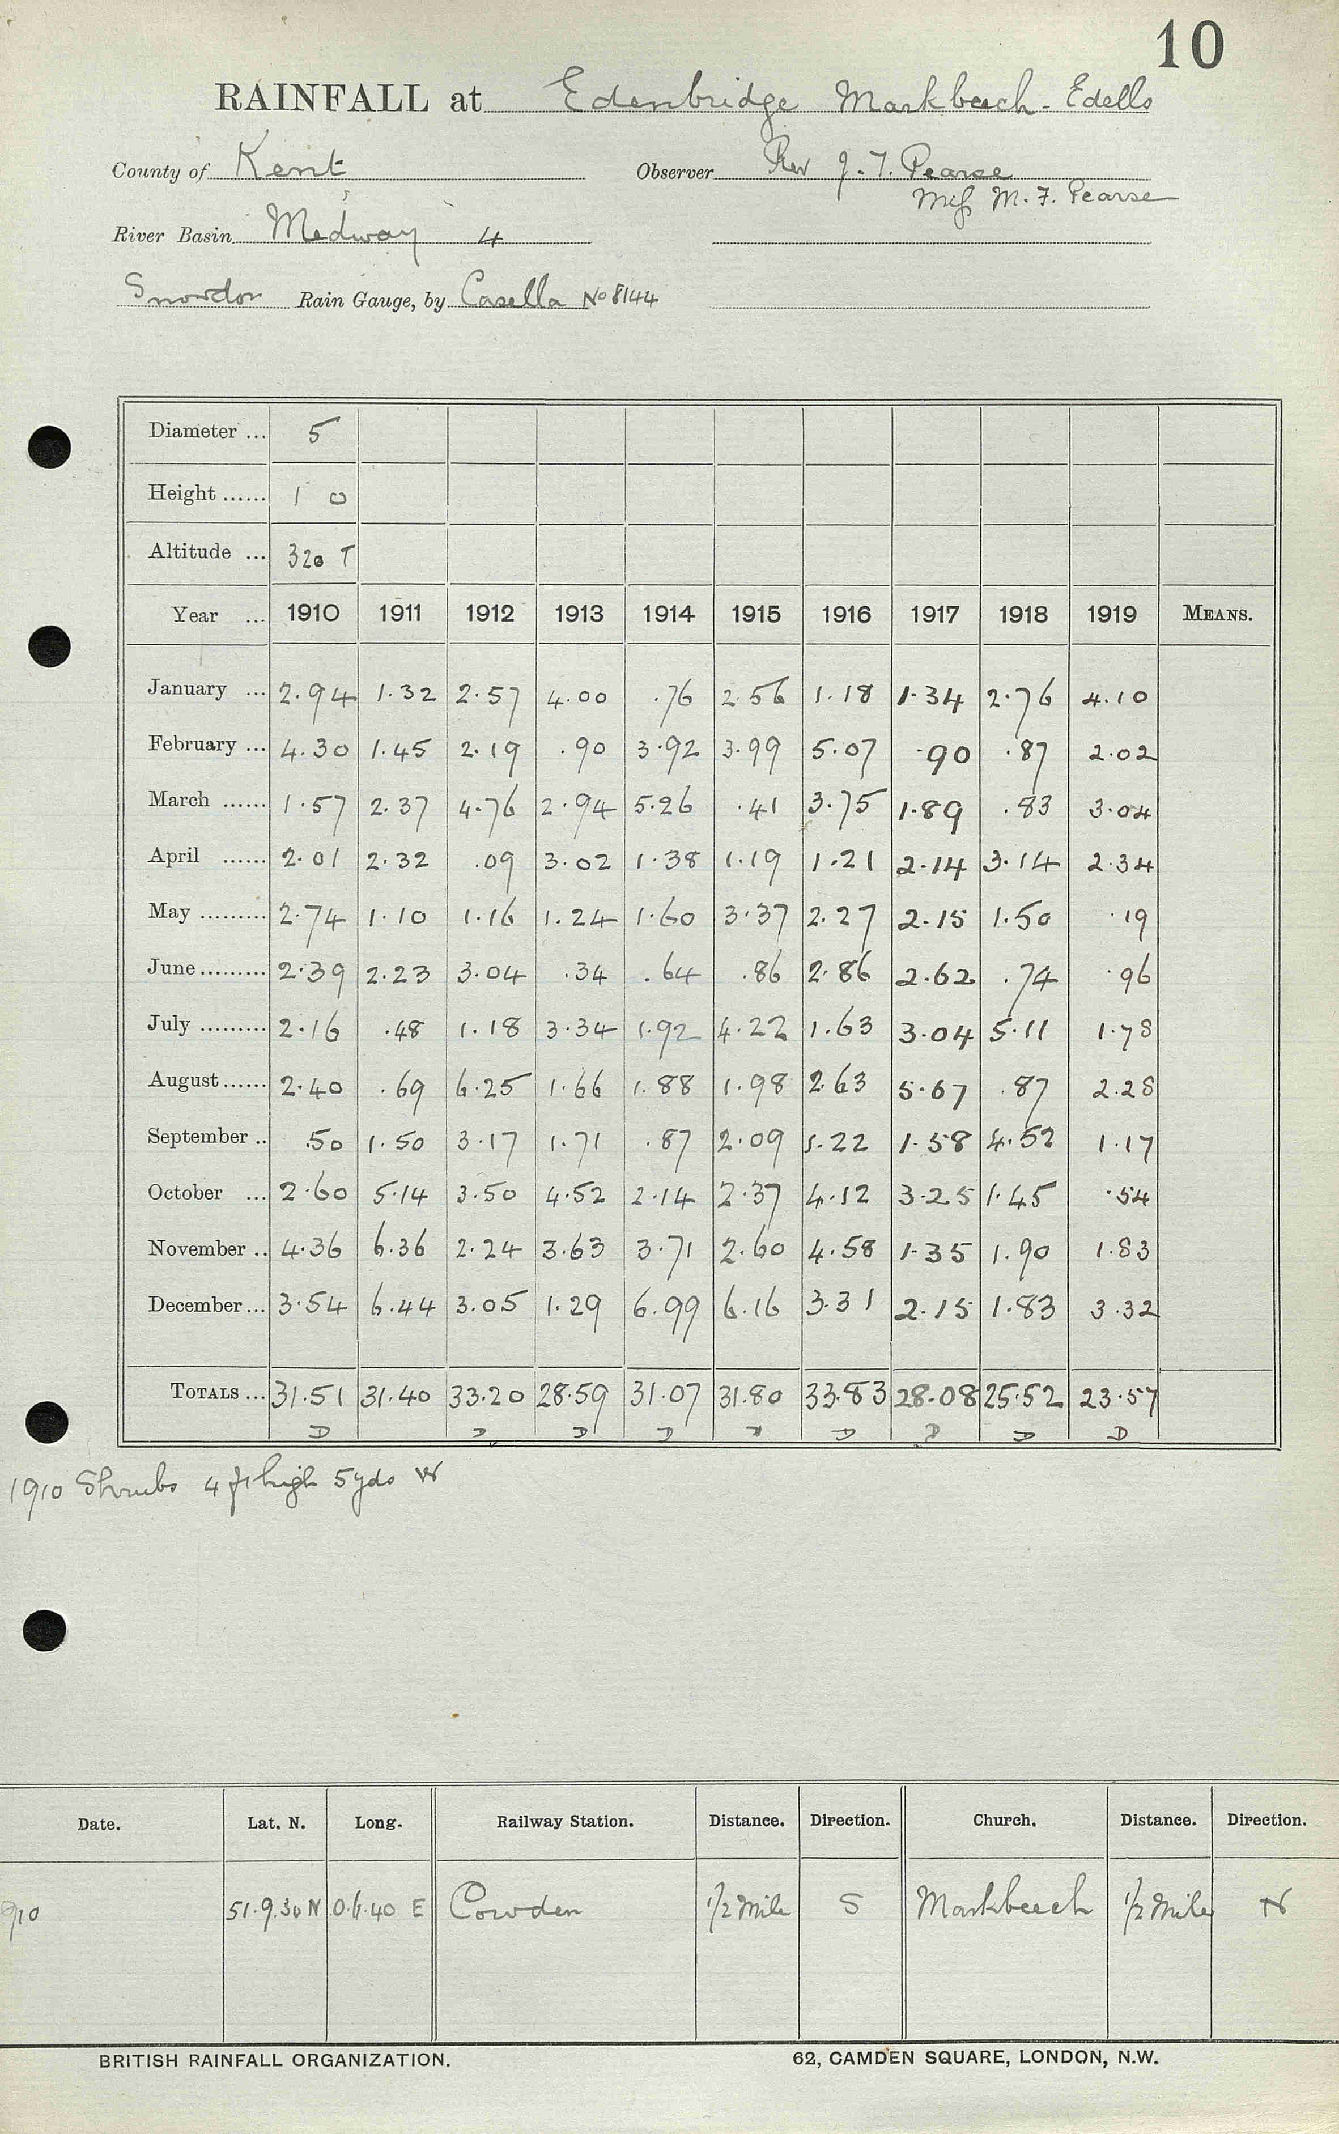 10
RAINFALL at Edenbridge Markbeech - Edells
County of Kent Observer Rev J. T. Pearse
Miss M. F. Pearse
River Basin Medway 4
Snowdon Rain Gauge, by Casella No 8144
Diameter ... 5
Height ...... 1 0
Altitude ... 320 T
Year ... 1910 1911 1912 1913 1914 1915 1916 1917 1918 1919 MEANS.
January ... 2.94 1.32 2.57 4.00 .76 2.56 1.18 1.34 2.76 4.10
February ... 4.30 1.45 2.19 .90 3.92 3.99 5.07 .90 .87 2.02
March ...... 1.57 2.37 4.76 2.94 5.26 .41 3.75 1.89 .83 3.04
April ...... 2.01 2.32 .09 3.02 1.38 1.19 1.21 2.14 3.14 2.34
May ......... 2.74 1.10 1.16 1.24 1.60 3.37 2.27 2.15 1.50 .19
June ......... 2.39 2.23 3.04 .34 .64 .86 2.86 2.62 .74 .96
July ......... 2.16 .48 1.18 3.34 1.92 4.22 1.63 3.04 5.11 1.78
August ...... 2.40 .69 6.25 1.66 1.88 1.98 2.63 5.67 .87 2.28
September .. .50 1.50 3.17 1.71 .87 2.09 1.22 1.58 4.52 1.17
October ... 2.60 5.14 3.50 4.52 2.14 2.37 4.12 3.25 1.45 .54
November .. 4.36 6.36 2.24 3.63 3.71 2.60 4.58 1.35 1.90 1.83
December ... 3.54 6.44 3.05 1.29 6.99 6.16 3.31 2.15 1.83 3.32
TOTALS ... 31.51 31.40 33.20 28.59 31.07 31.80 33.83 28.08 25.52 23.57
D D D D D D D D D
1910 Shrubs 4 ft high 5yds W
Date. Lat. N. Long. Railway Station. Distance. Direction. Church. Distance. Direction.
910 51.9.30 N 0.6.40 E Cowden 1/2 Mile S Markbeech 1/2 Mile N
BRITISH RAINFALL ORGANIZATION. 62, CAMDEN SQUARE, LONDON, N.W.